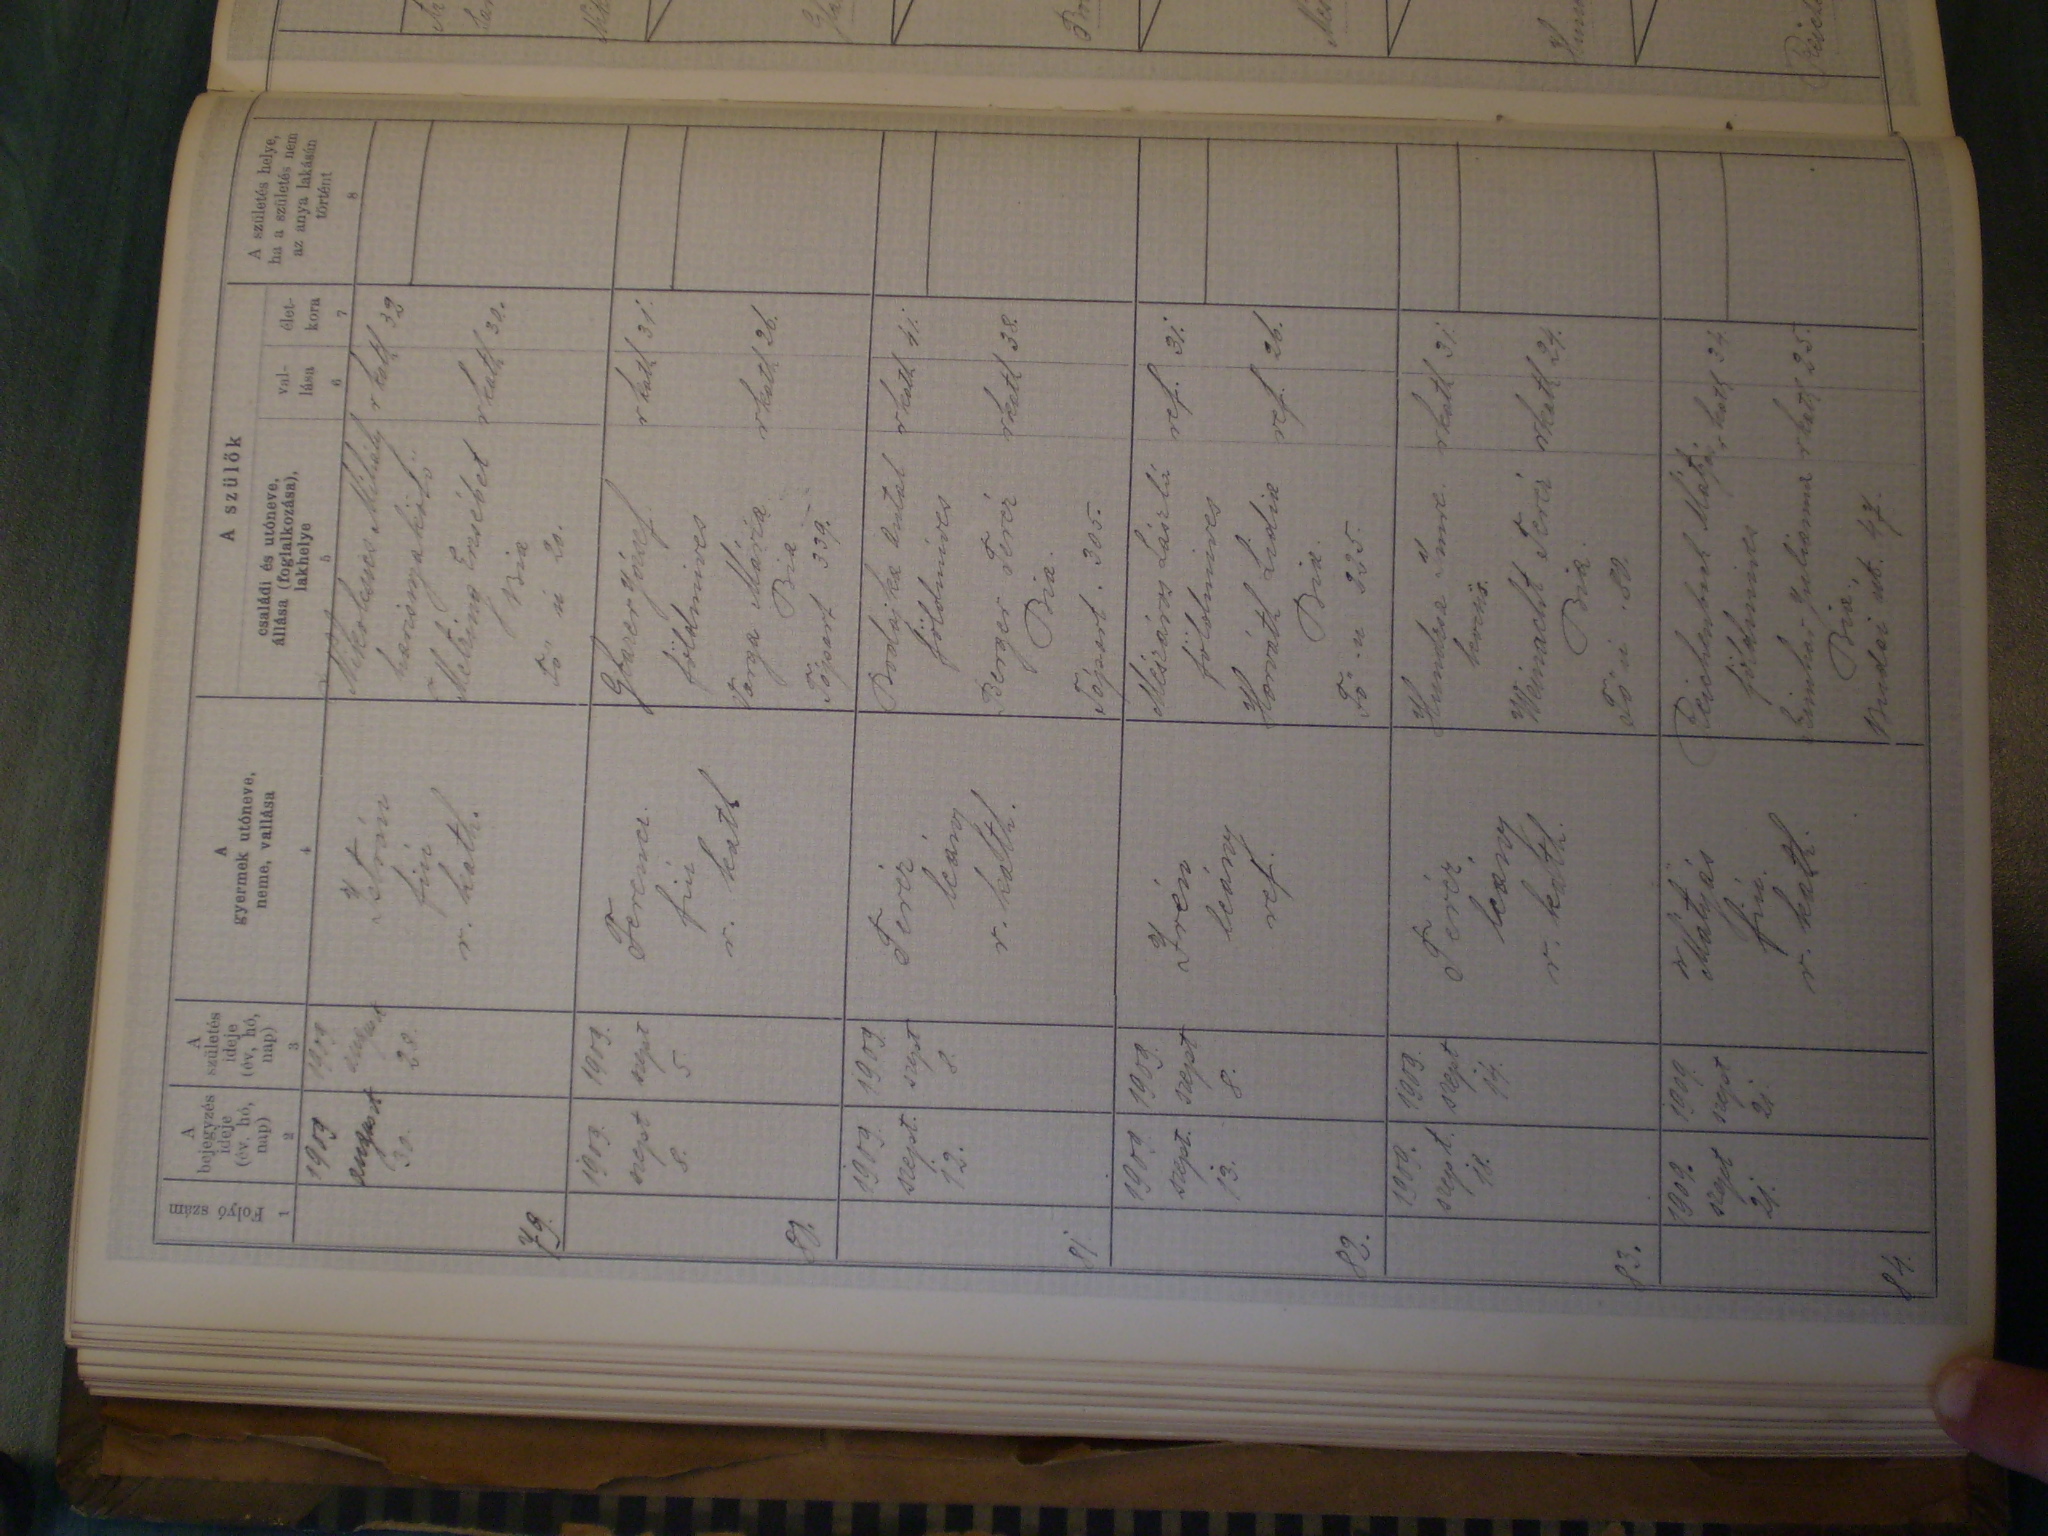 Folyó szám
1
A bejegyzés ideje (év, hó, nap)
2
A születés ideje (év, hó, nap)
3
A gyermek utóneve, neme, vallása
4
A szülők
családi és utóneve, állása (foglalkozása), lakhelye
5
val-lása
6
élet-kora
7
A születés helye, ha a születés nem az anya lakásán történt
8
79.
1909
august
30.
1909
august
28.
István
fiú
r. kath.
Mihály r kath 32
Erzsébet r kath 30.
Bia
Fő u 20.
1909.
szept
8.
1909.
szept
5.
Ferencz.
fiú
r. kath
Glazer József. r kath 31.
földmives
Varga Mária r kath 26.
Bia
Tópart 339.
81.
1909.
szept.
12.
1909.
szept
8.
Teréz
leány
r. kath.
r kath 41.
földmives
Berger Teréz r kath 38.
Bia.
Tópart. 305.
82.
1909.
szept.
13.
1909.
szept
8.
Irén
leány
ref.
Mészáros László ref. 31.
földmives
Horváth Lidia ref. 26.
Bia.
Fő-u 225.
83.
1909.
szept.
18.
1909.
szept
14.
Teréz
leány
r. kath.
Imre. r kath 31.
Weinacht Teréz r kath 24.
Bia.
Fő u. 80.
84.
1909.
szept
21.
1909.
szept
21.
Mátyás
fiú.
r. kath.
Mátyás r kath
földmives
Julianna r kath 25.
Bia,
Budai út. 47.